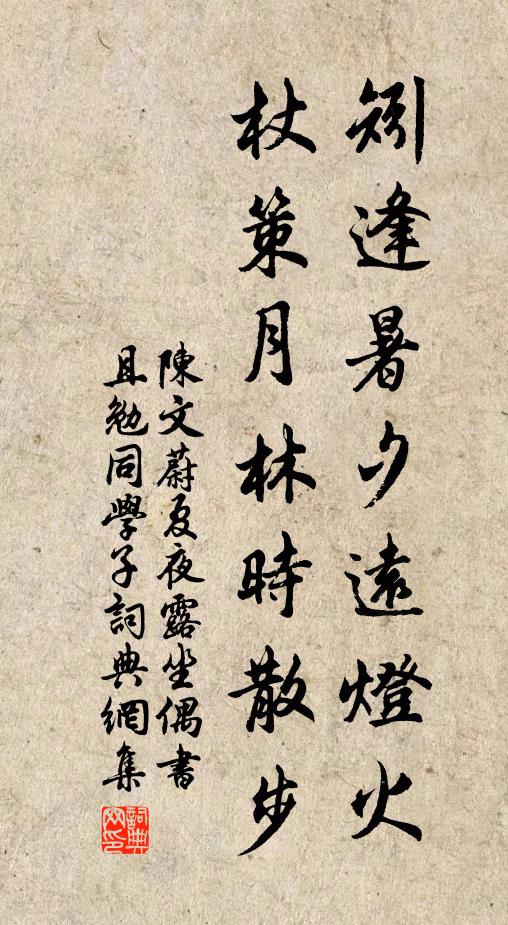 矧逢暑夕遠燈火
杖策月林時散步
陳文蔚夏夜露坐偶書
且勉同學子詞典網集
詞典网印